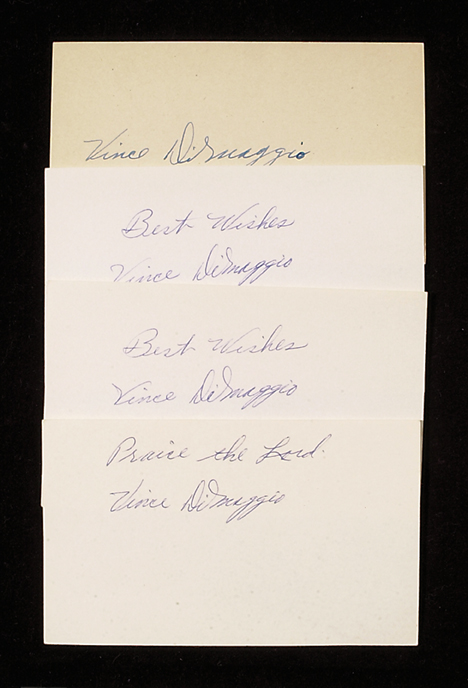 Vince DiMaggio
Best Wishes
Vince DiMaggio
Best Wishes
Vince DiMaggio
Praise the Lord.
Vince DiMaggio